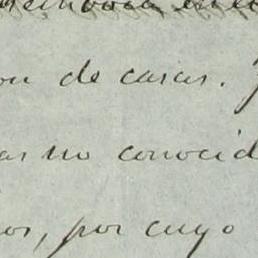 on de casas.
as no conocid
os, por cuyo